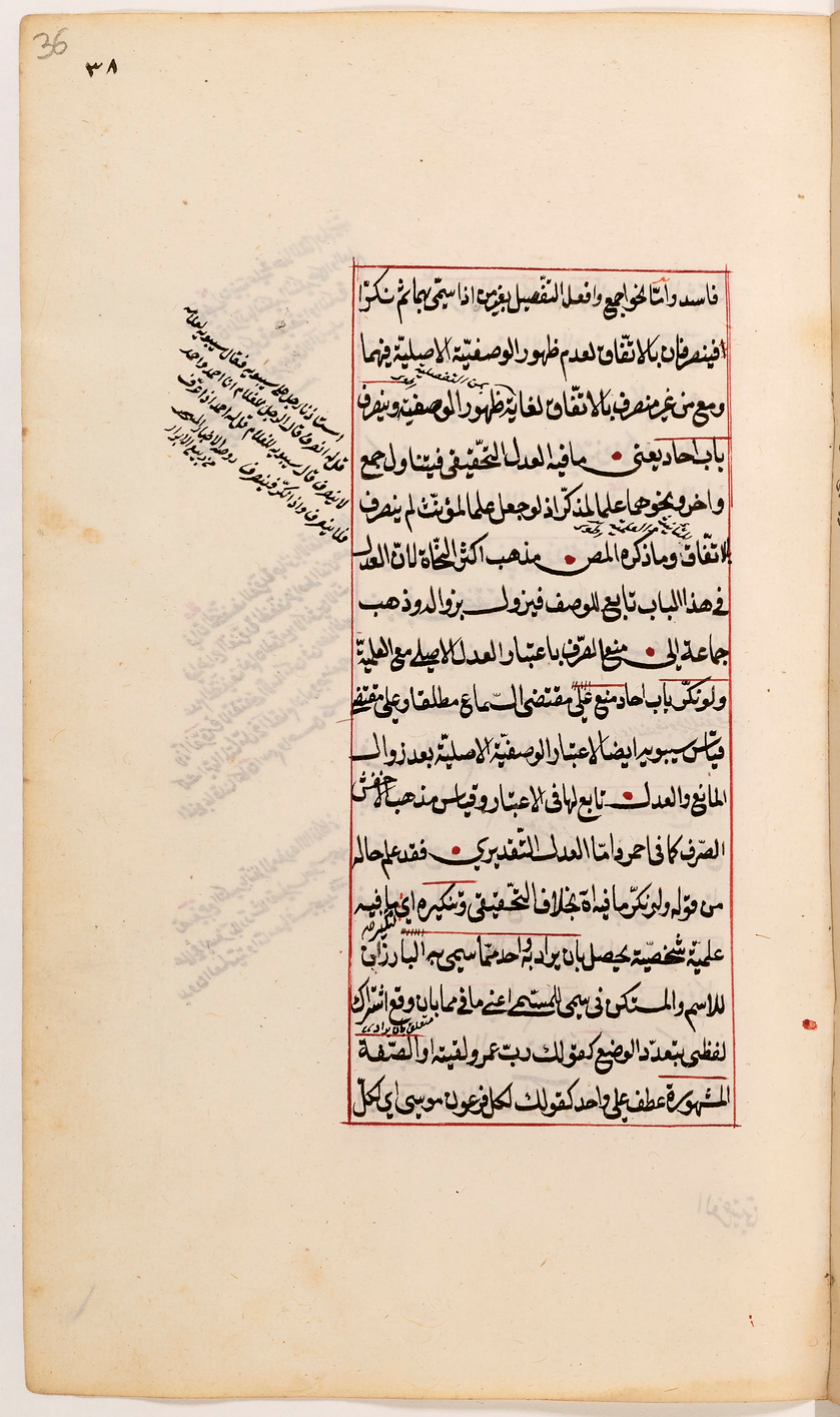 36
٣٨
فاسد وامّا نحو اجمع وافعل التفضيل بغير من اذا سمّى بهما ثم نكّرا
فينصرفان بالاتّفاق لعدم ظهور الوصفيّة الاصليّة فيهما
من التفضيلية
ومع من غير منصرف بالاتّفاق لغاية ظهور الوصفية وينصرف
باب احاد يعنى ما فيه العدل التحقيقى فيتناول جمع
واخر ونحوهما علما لمذكّر اذ لو جعل علما لمؤنث لم ينصرف
بالاتّفاق وما ذكره المص مذهب اكثر النحّاة لانّ العدل
فى هذا الباب تابع للوصف فيزول بزواله وذهب
جماعة الى منع الصّرف باعتبار العدل الاصلى مع العلميّة
ولو نكّر باب احاد منع على مقتضى السّماع مطلقا وعلى مقتضى
قياس سيبويه ايضا لاعتبار الوصفيّة الاصليّة بعد زوال
المانع والعدل تابع لها فى الاعتبار وقياس مذهب الاخفش
الصّرف كما فى احمر وامّا العدل التّقديرى فقد علم حاله
من قوله ولو نكّر ما فيه اه بخلاف التحقيقى وتنكيره اى ما فيه
علميّة شخصيّة يحصل بان يراد به واحد ممّا سمى به البارزان
للاسم والمستكن فى سمى للمستمى اعنى ما فى مما بان وقع اشتراك
متعلق بان يراد
لفظى بتعدّد الوضع كقولك ربّ عمرو لقيته او الصّفة
المشهورة عطف على واحد كقولك لكل فرعون موسى اى لكلّ
استاذنا رجل على سيبويه فقال سيبويه لغلامه
قل له انصرف قال الرجل للغلام انا احمد واحمد
لا ينصرف قال سيبويه للغلام قل له احمد اذا عرّف
فلا ينصرف واذا نكّر فينصرف
من ربيع الابرار